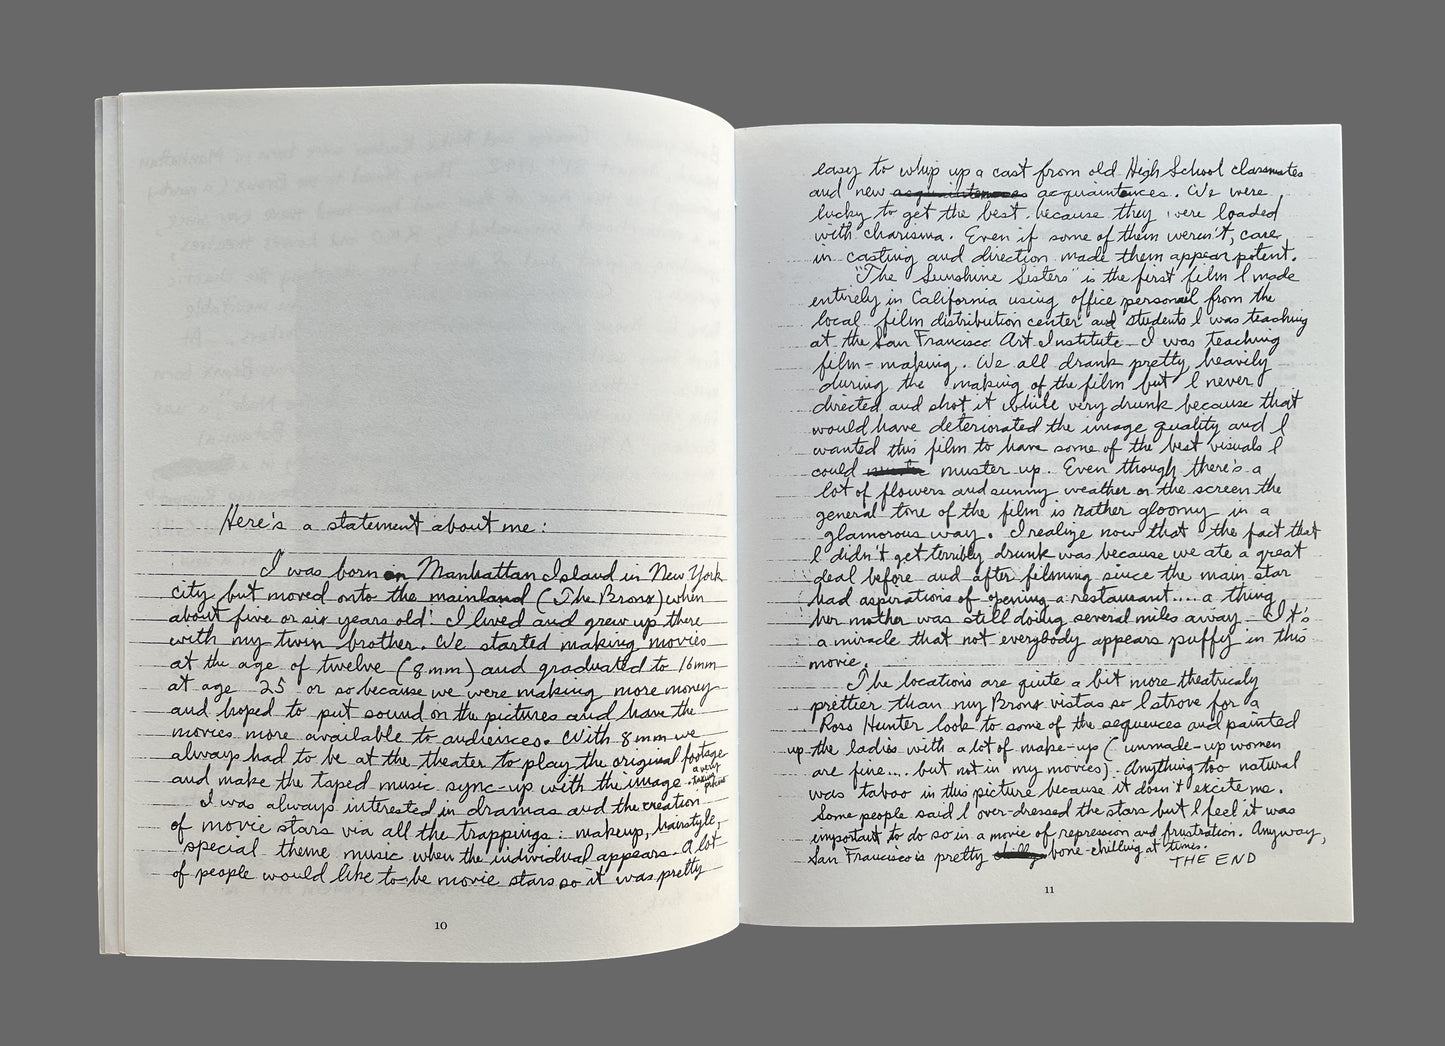 Here's a statement about me:
I was born on Manhattan Island in New York
city but moved onto the mainland (The Bronx) when
about five or six years old! I lived and grew up there
with my twin brother. We started making movies
at the age of twelve (8mm) and graduated to 16mm
at age 25 or so because we were making more money
and hoped to put sound on the pictures and have the
movies more available to audiences. With 8mm we
always had to be at the theater to play the original footage
and make the taped music sync-up with the image. a very taxing process
I was always intrested in dramas and the creation
of movie stars via all the trappings: makeup, hairstyle,
special theme music when the individual appears. A lot
of people would like to be movie stars so it was pretty
10
easy to whip up a cast from old High School classmates
and new acquaintences. We were
lucky to get the best because they were loaded
with charisma. Even if some of them weren't, care
in casting and direction made them appear potent.
"The Sunshine Sisters" is the first film I made
entirely in California using office personal from the
local film distribution center and students I was teaching
at the San Francisco Art Institute — I was teaching
film-making. We all drank pretty heavily
during the making of the film but I never
directed and shot it while very drunk because that
would have deteriorated the image quality and I
wanted this film to have some of the best visuals I
could muster up. Even though there's a
lot of flowers and sunny weather on the screen the
general tone of the film is rather gloomy in a
glamorous way. I realize now that the fact that
I didn't get terribly drunk was because we ate a great
deal before and after filming since the main star
had aspirations of opening a restaurant.... a thing
her mother was still doing several miles away — It's
a miracle that not everybody appears puffy in this
movie.
The locations are quite a bit more theatricaly
prettier than my Bronx vistas so I strove for a
Ross Hunter look to some of the sequences and painted
up the ladies with a lot of make-up (unmade-up women
are fine.... but not in my movies). Anything too natural
was taboo in this picture because it dosn't excite me.
Some people said I over-dressed the stars but I feel it was
important to do so in a movie of repression and frustration. Anyway,
San Francisco is pretty bone-chilling at times.
THE END
11